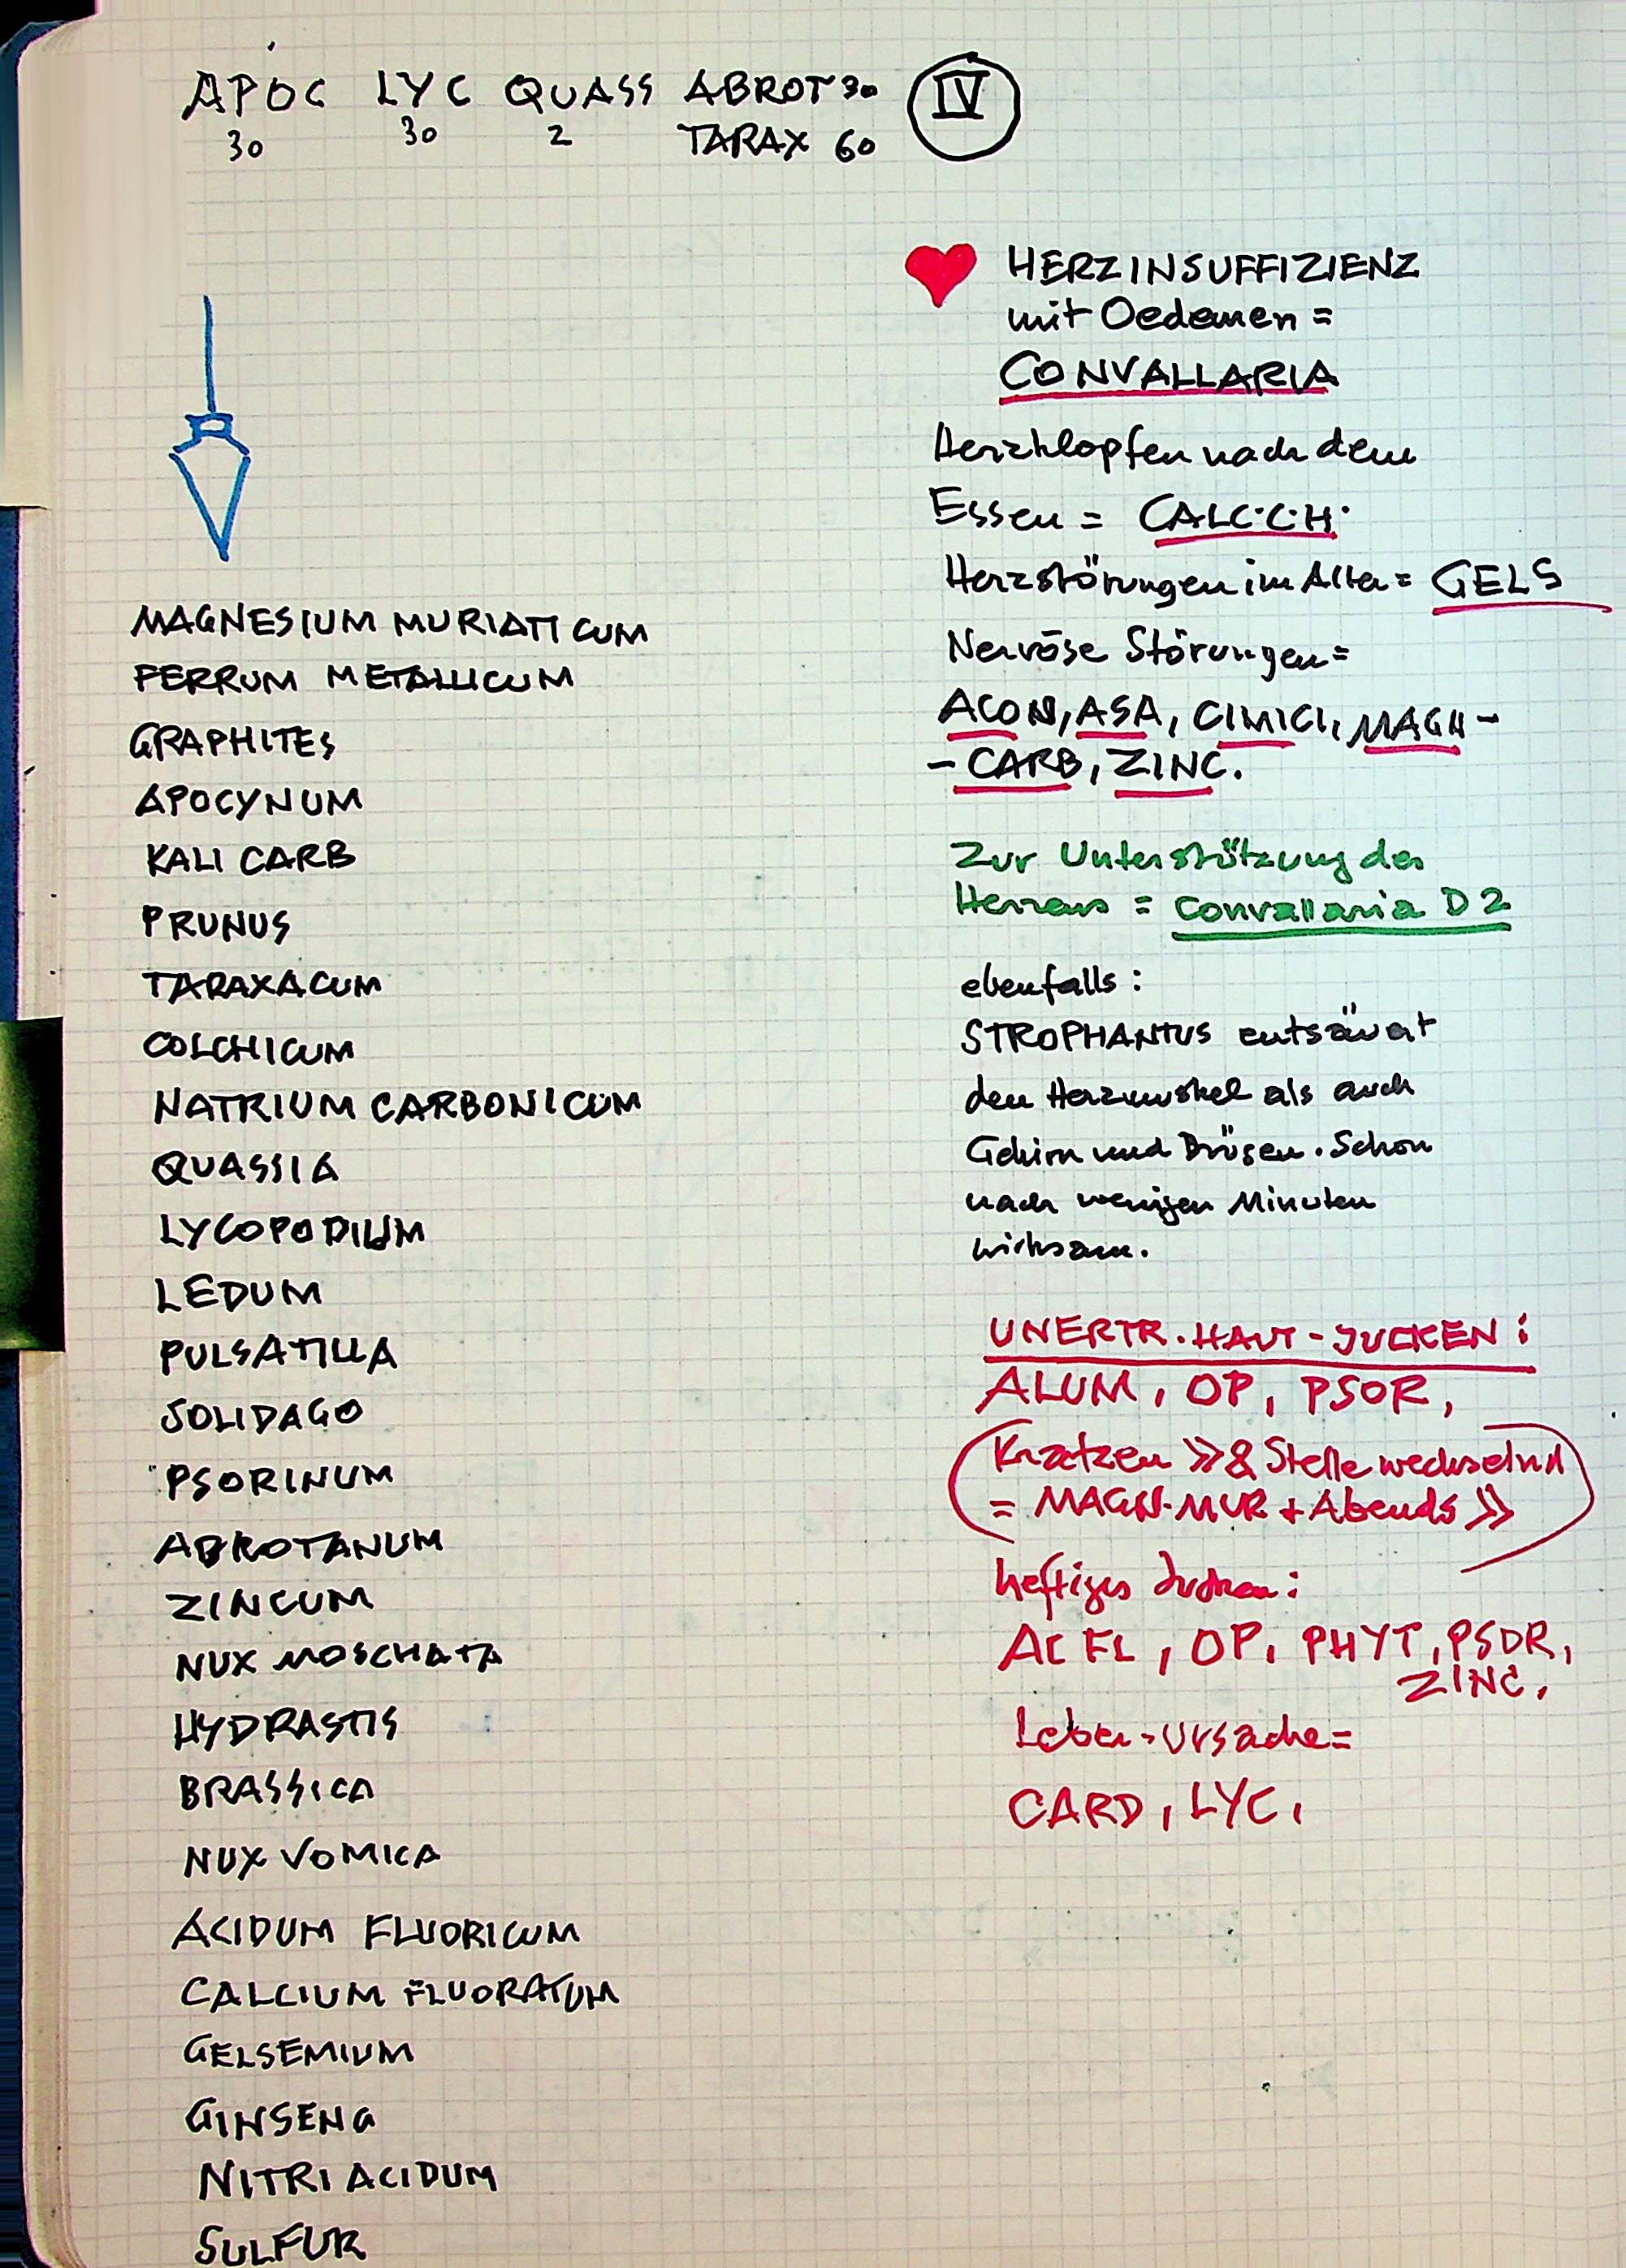 APOC LYC QUASS ABROT 30 IV
30 30 2 TARAX 60
MAGNESIUM MURIATICUM
FERRUM METALLICUM
GRAPHITES
APOCYNUM
KALI CARB
PRUNUS
TARAXACUM
COLCHICUM
NATRIUM CARBONICUM
QUASSIA
LYCOPODIUM
LEDUM
PULSATILLA
SOLIDAGO
PSORINUM
ABROTANUM
ZINCUM
NUX MOSCHATA
HYDRASTIS
BRASSICA
NUX VOMICA
ACIDUM FLUORICUM
CALCIUM FLUORATUM
GELSEMIUM
GINSENG
NITRI ACIDUM
SULFUR
HERZINSUFFIZIENZ
mit Oedemen =
CONVALLARIA
Herzklopfen nach dem
Essen = CALC.C.H.
Herzstörungen im Alter = GELS
Nervöse Störungen =
ACON, ASA, CIMICI, MAGN-
-CARB, ZINC.
Zur Unterstützung des
Herzens = Convallaria D2
ebenfalls:
STROPHANTUS entsäuert
den Herzmuskel als auch
Gehirn und Drüsen. Schon
nach wenigen Minuten
wirksam.
UNERTR. HAUT-JUCKEN:
ALUM, OP, PSOR,
(Kratzen >> & Stelle wechselnd
= MAGN-MUR + Abends >>)
heftiges Jucken:
AC FL, OP, PHYT, PSOR,
ZINC.
Leber-Ursache=
CARD, LYC,